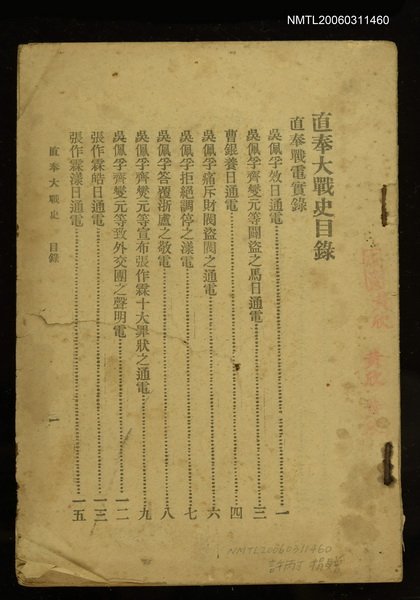 NMTL20060311460
直奉大戰史目錄
直奉戰電實錄
吳佩孚效日通電 一
吳佩孚齊燮元等闢盜之馬日通電 三
曹銀養日通電 四
吳佩孚痛斥財閥盜閥之通電 六
吳佩孚拒絕調停之漾電 七
吳佩孚答覆浙盧之敬電 八
吳佩孚齊燮元等宣布張作霖十大罪狀之通電 九
吳佩孚齊燮元等致外交團之聲明電 一二
張作霖皓日通電 一三
張作霖漾日通電 一五
直奉大戰史 目錄 一
NMTL20060311460
許丙丁捐贈